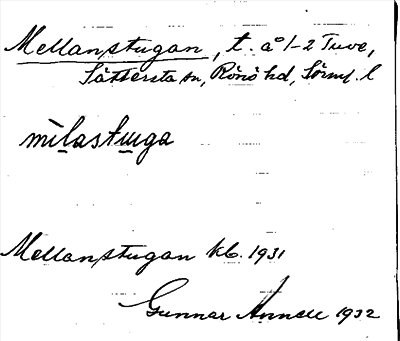 Mellanstugan, t. å 1-2 Tuve,
Sättersta sn, Rönö hd, Sörml. l
mìlastuga
Mellanstugan kb. 1931
Gunnar Annell 1932